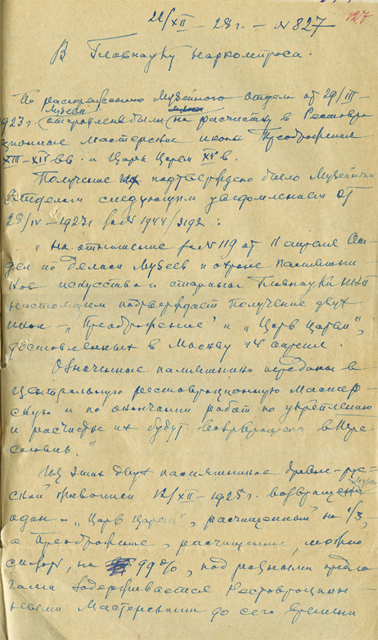 22/XII – 28 г. – № 827
127
В Главнауку Наркомпроса.
По распоряжению Музейного отдела от 29/III –
1923 г. отправлены были на расчистку в Реставра
ционные Мастерские иконы Преображение
XIII–XIV вв. и Царь Царем XV в.
Получение их подтверждено было Музейным
отделом следующим уведомлением от
за № 1944/3192 :
" На отношение за № 119 от 11 апреля От
дел по делам Музеев и охране памятни
ков искусства и старины Главнауки НКП
настоящим подтверждает получение двух
икон – „Преображение" и „Царь Царем",
доставленных в Москву апреля.
Означенные памятники переданы в
Центральную реставрационную Мастер-
скую и по окончании работ по укреплению
и расчистке их будут возвращены в Пере
славль."
Из этих двух памятников древне-рус-
ской живописи 12/XII – 1925 г. возвращен
один – „Царь Царем", расчищенный на 1/3,
а Преображение, расчищенное, можно
сказать, на 99%, под разными предло
гами задерживается Реставрацион-
ными Мастерскими до сего времени